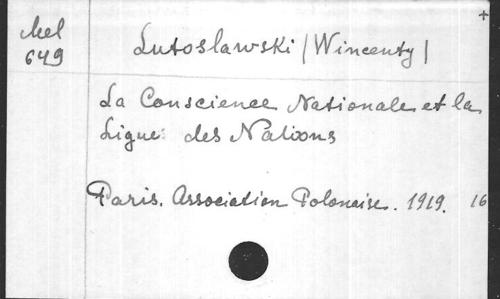 +
Mel
649
Lutoslawski (Wincenty)
La Conscience Nationale et la
Ligue des Nations
Paris. Association Polonaise. 1919. 16